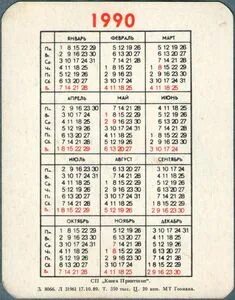 1990
ЯНВАРЬ ФЕВРАЛЬ МАРТ
П. 1 8 15 22 29 5 12 19 26 5 12 19 26
В. 2 9 16 23 30 6 13 20 27 6 13 20 27
Ср. 3 10 17 24 31 7 14 21 28 7 14 21 28
Ч. 4 11 18 25 1 8 15 22 1 8 15 22 29
П. 5 12 19 26 2 9 16 23 2 9 16 23 30
С. 6 13 20 27 3 10 17 24 3 10 17 24 31
В. 7 14 21 28 4 11 18 25 4 11 18 25
АПРЕЛЬ МАЙ ИЮНЬ
П. 2 9 16 23 30 7 14 21 28 4 11 18 25
В. 3 10 17 24 1 8 15 22 29 5 12 19 26
Ср. 4 11 18 25 2 9 16 23 30 6 13 20 27
Ч. 5 12 19 26 3 10 17 24 31 7 14 21 28
П. 6 13 20 27 4 11 18 25 1 8 15 22 29
С. 7 14 21 28 5 12 19 26 2 9 16 23 30
В. 1 8 15 22 29 6 13 20 27 3 10 17 24
ИЮЛЬ АВГУСТ СЕНТЯБРЬ
П. 2 9 16 23 30 6 13 20 27 3 10 17 24
В. 3 10 17 24 31 7 14 21 28 4 11 18 25
Ср. 4 11 18 25 1 8 15 22 29 5 12 19 26
Ч. 5 12 19 26 2 9 16 23 30 6 13 20 27
П. 6 13 20 27 3 10 17 24 31 7 14 21 28
С. 7 14 21 28 4 11 18 25 1 8 15 22 29
В. 1 8 15 22 29 5 12 19 26 2 9 16 23 30
ОКТЯБРЬ НОЯБРЬ ДЕКАБРЬ
П. 1 8 15 22 29 5 12 19 26 3 10 17 24 31
В. 2 9 16 23 30 6 13 20 27 4 11 18 25
Ср. 3 10 17 24 31 7 14 21 28 5 12 19 26
Ч. 4 11 18 25 1 8 15 22 29 6 13 20 27
П. 5 12 19 26 2 9 16 23 30 7 14 21 28
С. 6 13 20 27 3 10 17 24 1 8 15 22 29
В. 7 14 21 28 4 11 18 25 2 9 16 23 30
СП „Книга Принтшоп".
З. 8066. Л 31981 17.10.89. Т. 350 тыс. Ц. 20 коп. МТ Гознака.